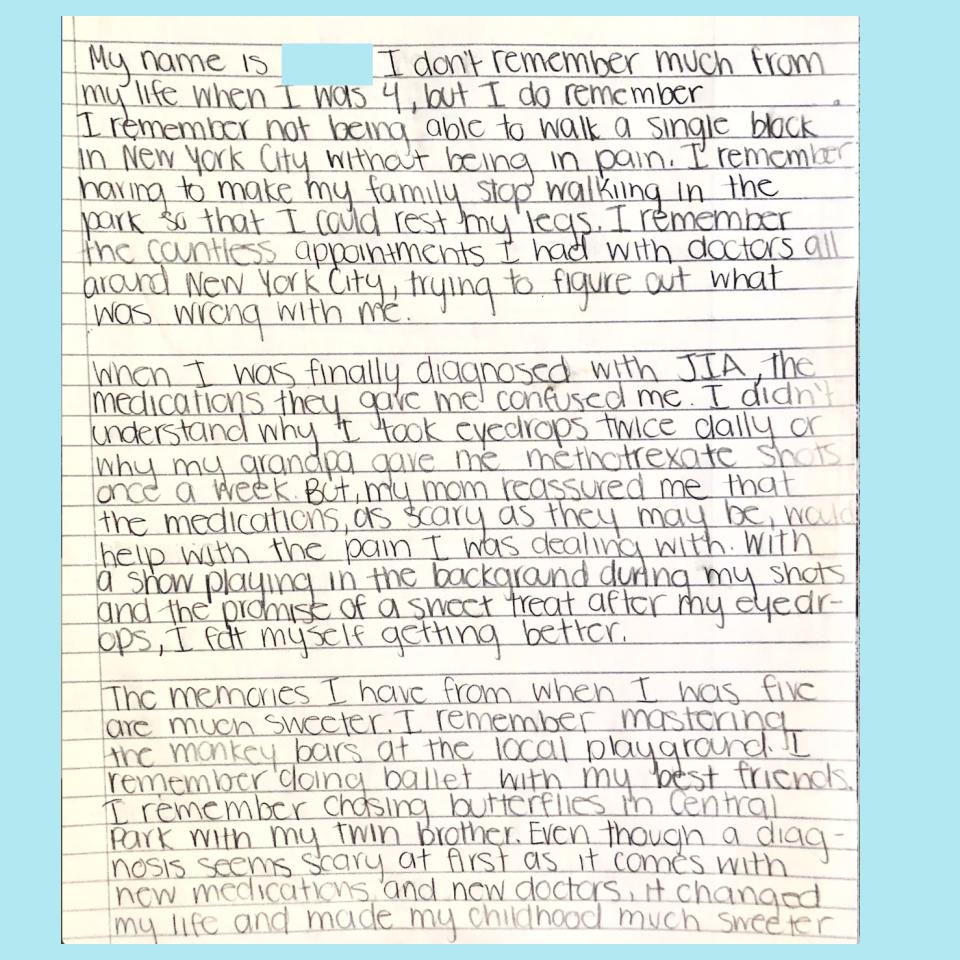 My name is I don't remember much from
my life when I was 4, but I do remember
I remember not being able to walk a single block
in New York City without being in pain. I remember
having to make my family stop walkiing in the
park so that I could rest my legs. I remember
the countless appointments I had with doctors all
around New York City, trying to figure out what
was wrong with me.
When I was finally diagnosed with JIA, the
medications they gave me confused me. I didn't
understand why I took eyedrops twice daily or
why my grandpa gave me methotrexate shots
once a week. But, my mom reassured me that
the medications, as scary as they may be, would
help with the pain I was dealing with. With
a show playing in the background during my shots
and the promise of a sweet treat after my eyedr-
ops, I felt myself getting better.
The memories I have from when I was five
are much sweeter. I remember mastering
the monkey bars at the local playground. I
remember doing ballet with my best friends.
I remember chasing butterflies in Central
Park with my twin brother. Even though a diag-
nosis seems scary at first as it comes with
new medications and new doctors, it changed
my life and made my childhood much sweeter